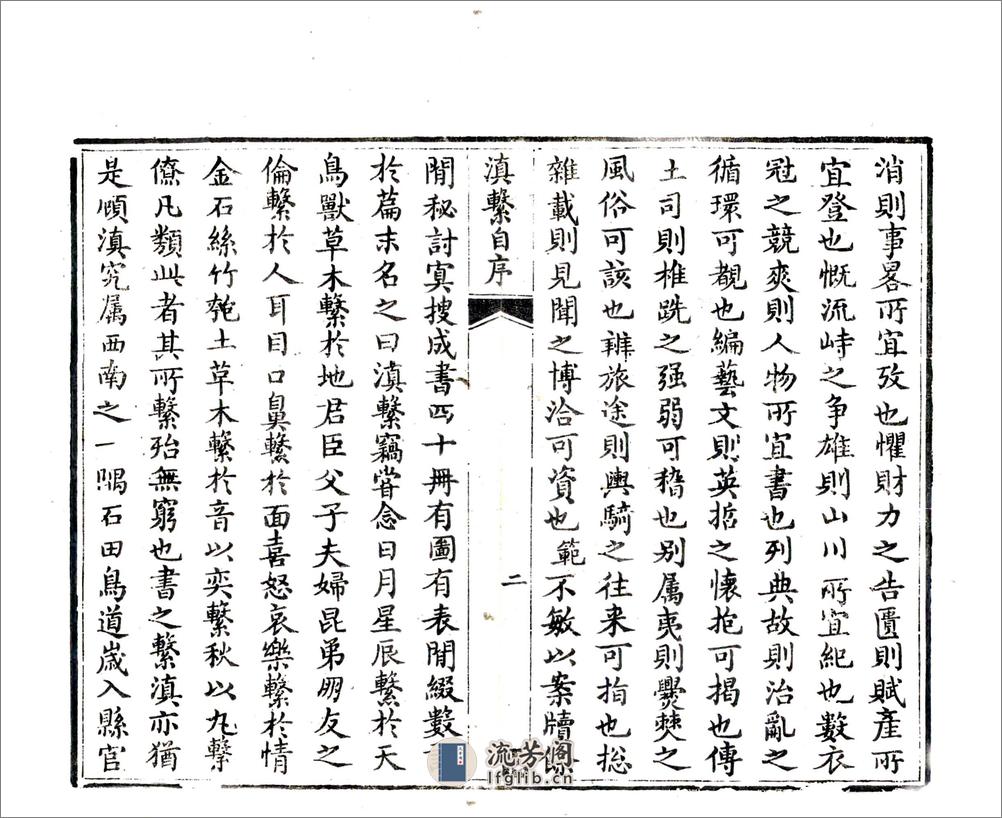 消則事畧所宜攷也懼財力之告匱則賦產所
宜登也慨流峙之争雄則山川所宜紀也數衣
冠之競爽則人物所宜書也列典故則治亂之
循環可覩也編藝文則英哲之懷抱可揭也傳
土司則椎跣之强弱可稽也别属夷則爨僰之
風俗可該也辨旅途則輿騎之往来可指也総
雜載則見聞之博洽可資也範不敏以案牘餘
滇繫自序
二
閒秘討冥搜成書四十冊有圖有表間綴數言
於篇末名之曰滇繫竊嘗念日月星辰繫於天
鳥獸草木繫於地君臣父子夫婦昆弟朋友之
倫繫於人耳目口鼻繫於面喜怒哀樂繫於情
金石絲竹匏土草木繫於音以奕繫秋以丸繫
僚凡類此者其所繫殆無窮也書之繫滇亦猶
是顧滇究属西南之一隅石田鳥道歲入縣官
流芳阁
lfglib.cn